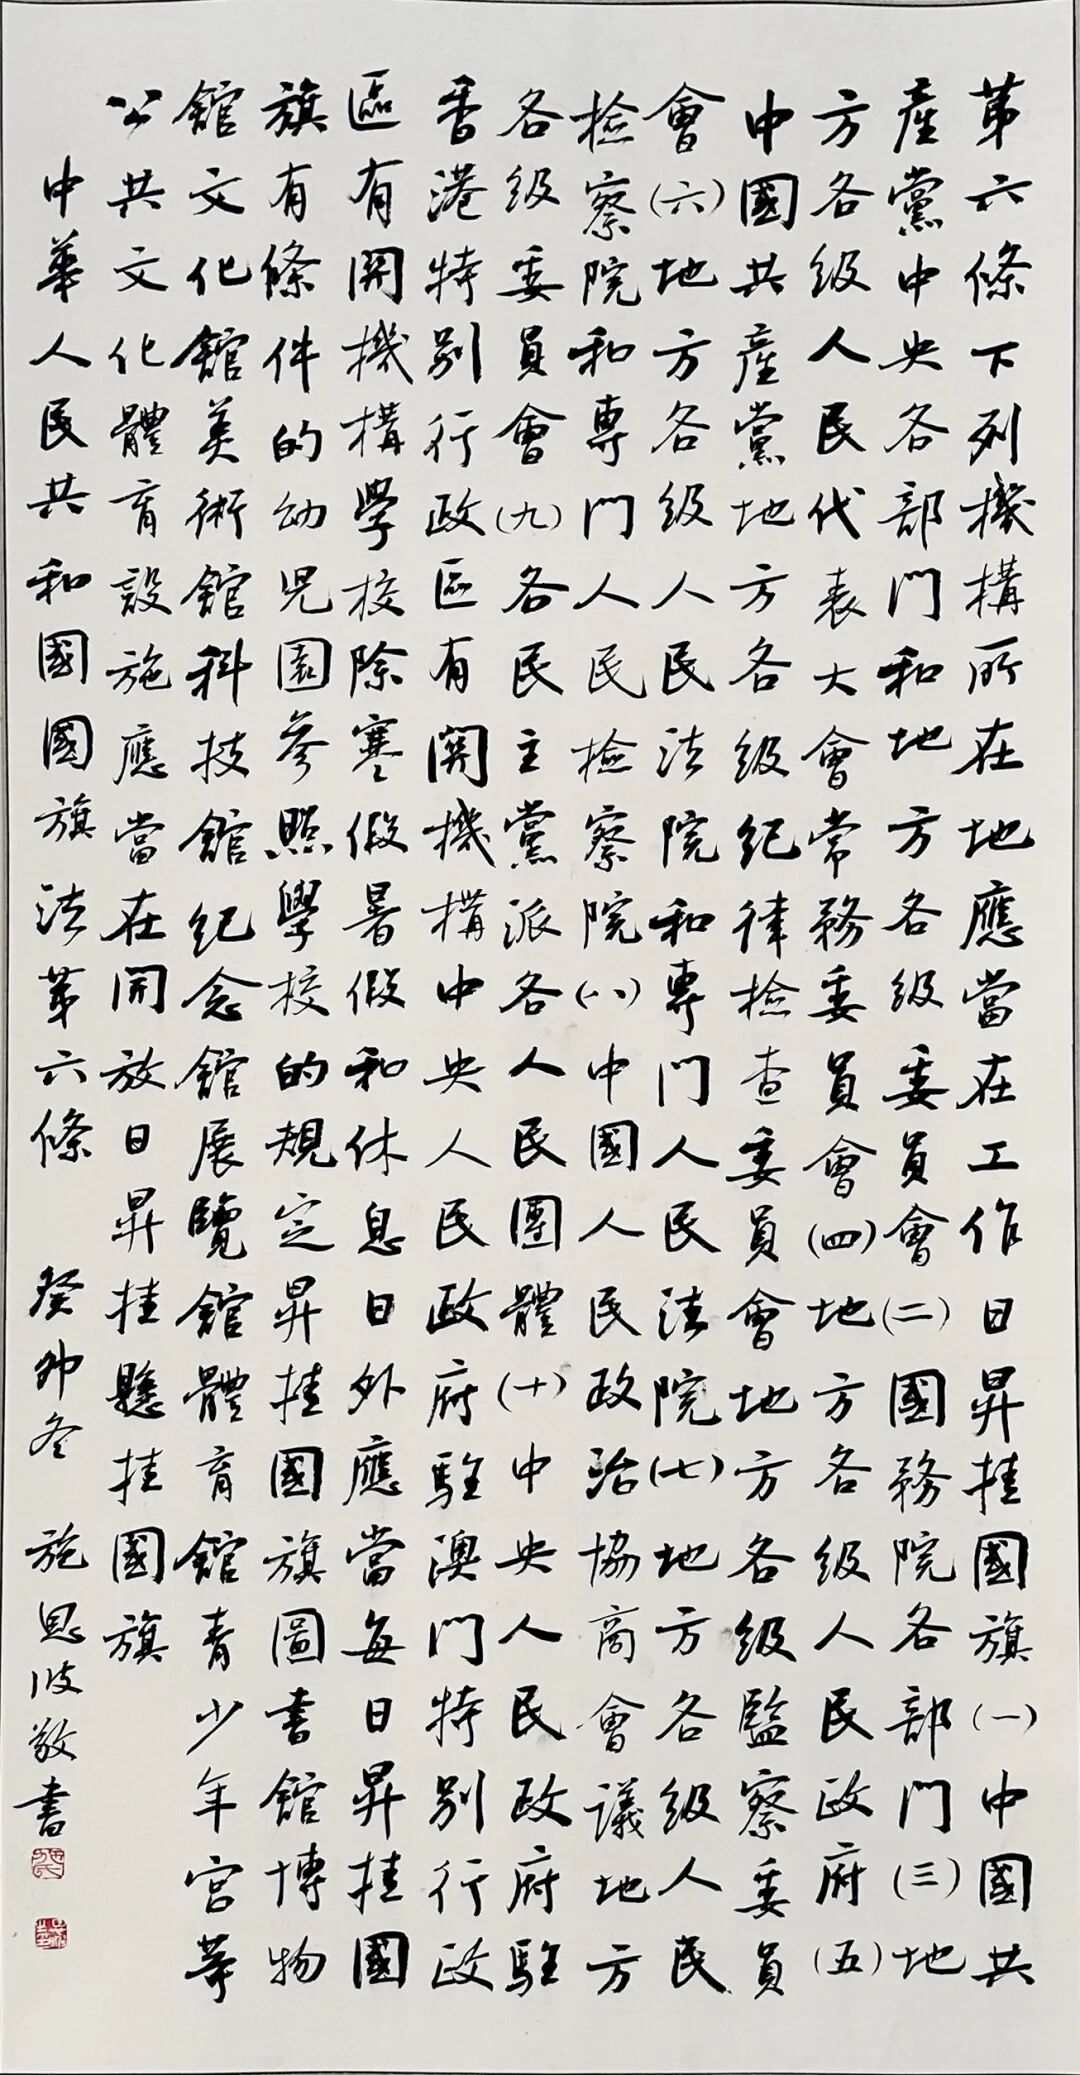 第六條下列機構所在地應當在工作日昇挂國旗(一)中國共
産黨中央各部門和地方各級委員會(二)國務院各部門(三)地
方各級人民代表大會常務委員會(四)地方各級人民政府(五)
中國共産黨地方各級紀律檢查委員會地方各級監察委員
會(六)地方各級人民法院和專門人民法院(七)地方各級人民
檢察院和專門人民檢察院(八)中國人民政治協商會議地方
各級委員會(九)各民主黨派各人民團體(十)中央人民政府駐
香港特別行政區有關機構中央人民政府駐澳門特別行政
區有關機構學校除寒假暑假和休息日外應當每日昇挂國
旗有條件的幼兒園參照學校的規定昇挂國旗圖書館博物
館文化館美術館科技館紀念館展覽館體育館青少年宮等
公共文化體育設施應當在開放日昇挂懸挂國旗
中華人民共和國國旗法第六條 癸卯冬 施恩波敬書